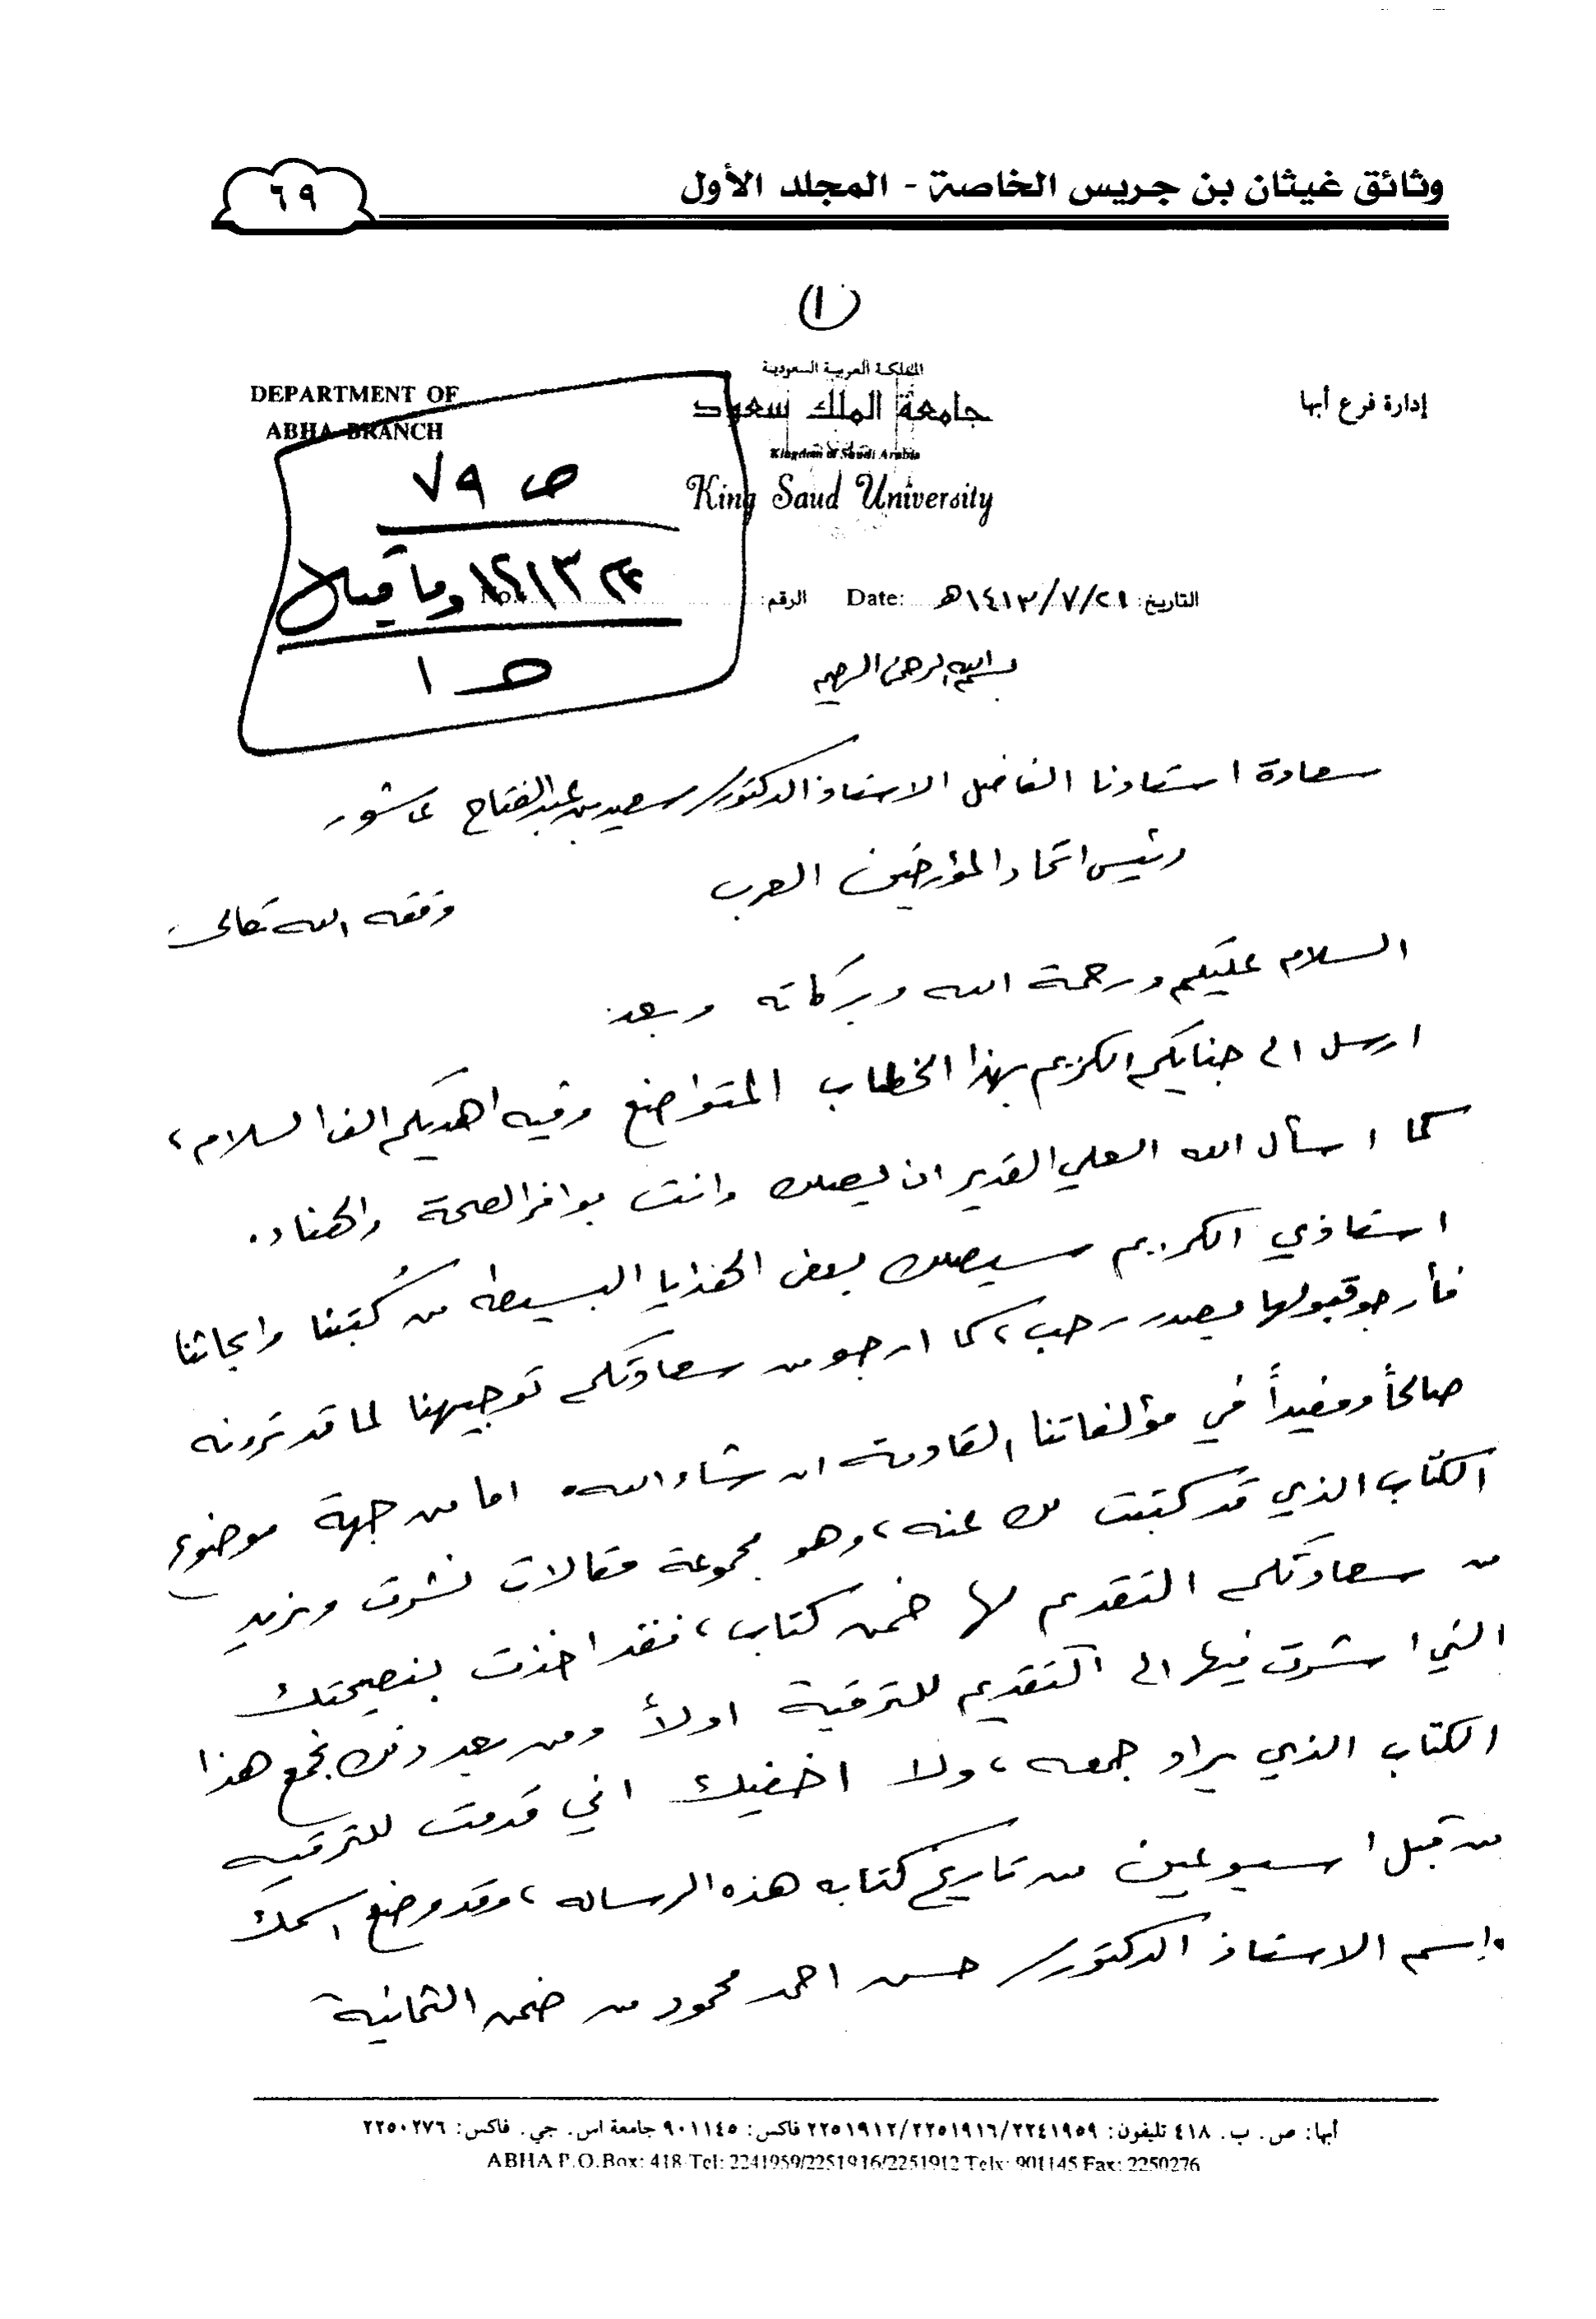 وثائق غيثان بن جريس الخاصة - المجلد الأول
٦٩
(١)
المملكة العربية السعودية
جامعة الملك سعود
Kingdom of Saudi Arabia
King Saud University
إدارة فرع أبها
DEPARTMENT OF
ABHA BRANCH
ص ٧٩
وما قبلا
ص ١
التاريخ: ١٤١٣/٧/٢١هـ Date: الرقم: No.
بسم الله الرحمن الرحيم
سعادة استاذنا الفاضل الاستاذ الدكتور/ سعيد بن عبدالفتاح عاشور
رئيس اتحاد المؤرخين العرب
وفقه الله تعالى
السلام عليكم ورحمة الله وبركاته وبعد:
ارسل الى جنابكم الكريم بهذا الخطاب المتواضع وفيه اهديكم الف السلام،
كما اسأل الله العلي القدير ان يصلك وانت بوافر الصحة والهناء.
استاذي الكريم سيصلك بعض الهدايا البسيطه من كُتبنا وابحاثنا
فأرجو قبولها بصدر رحب، كما ارجو من سعادتكم توجيهنا لما قد ترونه
صالحاً ومفيداً في مؤلفاتنا القادمة ان شاء الله. اما من جهة موضوع
الكتاب الذي قد كتبت لك عنه، وهو مجموعة مقالات نشرت ونريد
من سعادتكم التقديم لها ضمن كتاب، فقد اخذت بنصيحتك
التي اشرت فيها الى التقديم للترقية اولاً ومن بعد ذلك نجمع هذا
الكتاب الذي يراد جمعه، ولا اخفيك اني قدمت للترقيه
من قبل اسبوعين من تاريخ كتابه هذه الرساله، وقد وضع اسمك
واسم الاستاذ الدكتور/ حسن احمد محمود من ضمن الثمانية
أبها: ص. ب. ٤١٨ تليفون: ٢٢٤١٩٥٩/٢٢٥١٩١٦/٢٢٥١٩١٢ فاكس: ٩٠١١٤٥ جامعة اس. جي. فاكس: ٢٢٥٠٢٧٦
ABHA P.O.Box: 418 Tel: 2241959/2251916/2251912 Telx: 901145 Fax: 2250276